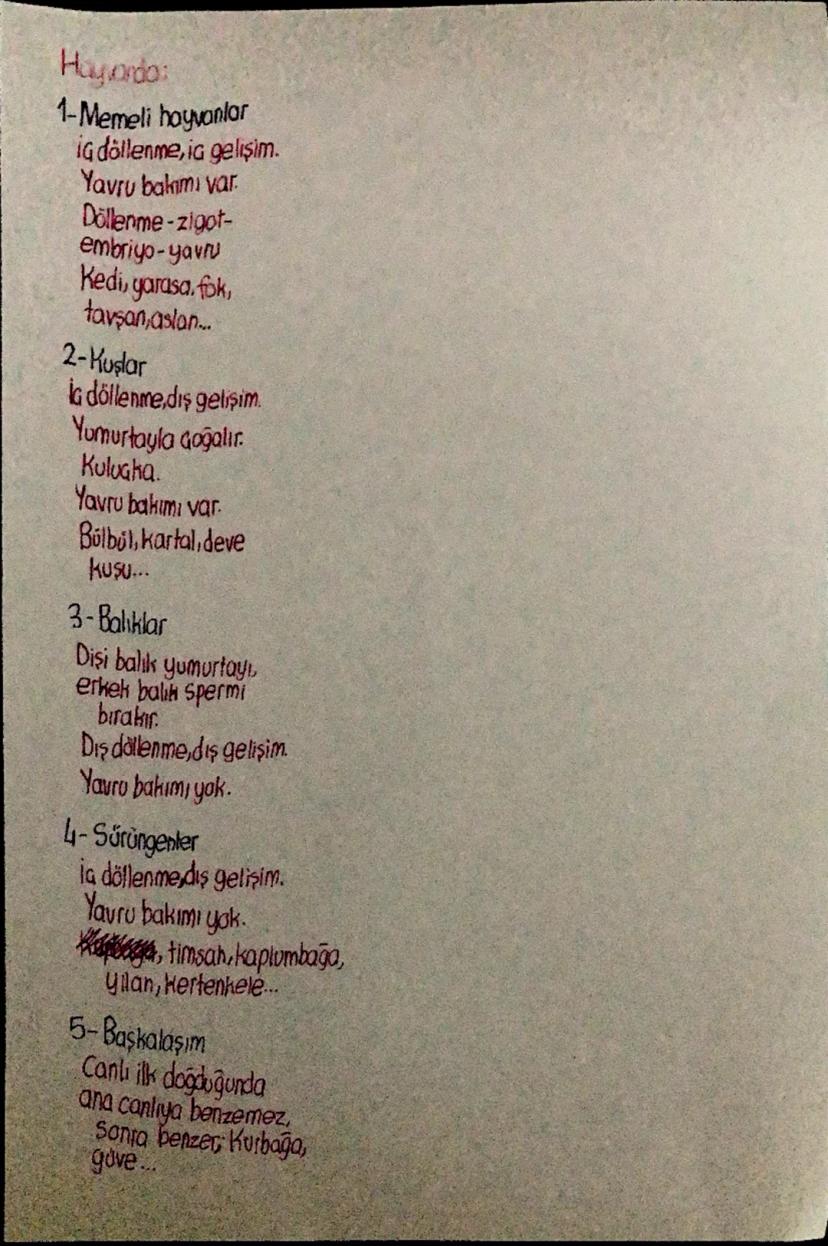 Hayvanda:
1-Memeli hayvanlar
iç döllenme, iç gelişim.
Yavru bakımı var.
Döllenme-zigot-
embriyo-yavru
Kedi, yarasa, fok,
tavşan, aslan...
2-Kuşlar
İç döllenme, dış gelişim.
Yumurtayla çoğalır.
Kuluçka.
Yavru bakımı var.
Bülbül, kartal, deve
kuşu...
3-Balıklar
Dişi balık yumurtayı,
erkek balık spermi
bırakır.
Dış döllenme, dış gelişim.
Yavru bakımı yok.
4-Sürüngenler
İç döllenme, dış gelişim.
Yavru bakımı yok.
, timsah, kaplumbağa,
yılan, kertenkele...
5-Başkalaşım
Canlı ilk doğduğunda
ana canlıya benzemez,
sonra benzer; Kurbağa,
güve...